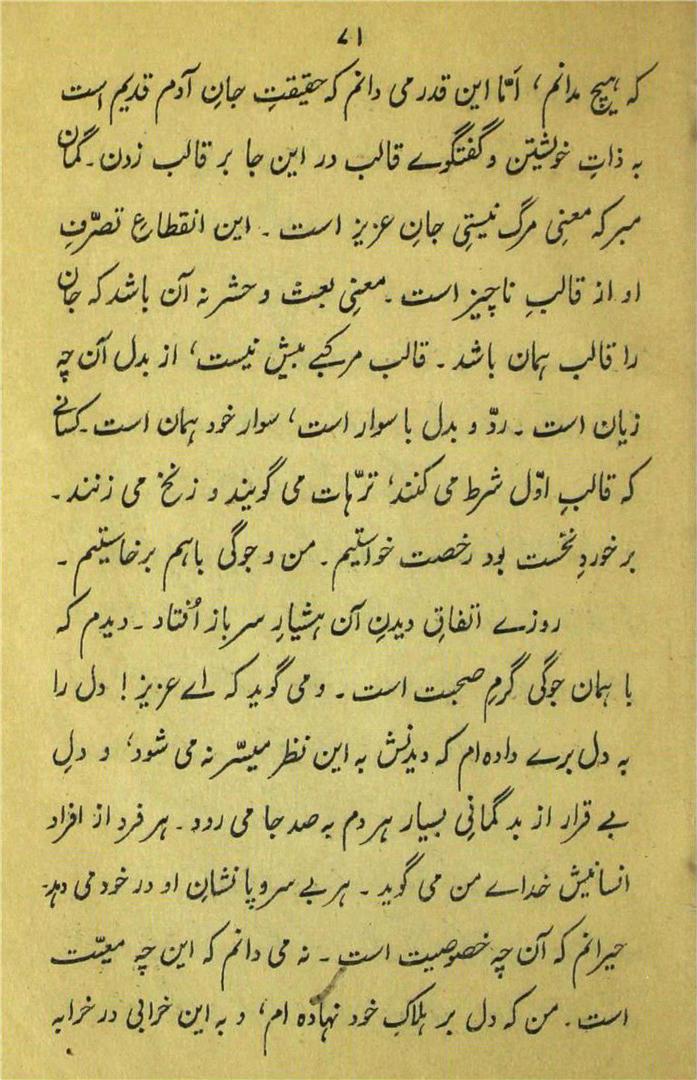 ۷۱
که هیچ مدانم، اَمّا این قدر می دانم که حقیقتِ جانِ آدم قدیم است
به ذاتِ خویشتن و گفتگوے قالب در این جا بر قالب زدن۔ گمان
مبر که معنیِ مرگ نیستیِ جانِ عزیز است ۔ این انقطاعِ تصرّفِ
او از قالبِ ناچیز است ۔ معنیِ بعث و حشر نه آن باشد که جان
را قالب همان باشد ۔ قالب مرکبے بیش نیست، از بدل آن چه
زیان است ۔ ردّ و بدل با سوار است، سوار خود همان است ۔ کسانے
که قالبِ اوّل شرط می کنند، ترّهات می گویند و زنخ می زنند ۔
برخوردِ نخست بود رخصت خواستیم ۔ من و جوگی باهم برخاستیم ۔
روزے اتفاقِ دیدنِ آن هشیارِ سرباز اُفتاد ۔ دیدم که
با همان جوگی گرمِ صحبت است ۔ و می گوید که اے عزیز ! دل را
به دل برے داده ام که دیدنش به این نظر میسّر نه می شود، و دلِ
بے قرار از بد گمانیِ بسیار هر دم به صد جا می رود ۔ هر فرد از افرادِ
انسانیش خداے من می گوید ۔ هر بے سروپا نشانِ او در خود می دهد۔
حیرانم که آن چه خصوصیت است ۔ نه می دانم که این چه معیّت
است ۔ من که دل بر هلاکِ خود نهاده ام، و به این خرابی در خرابه